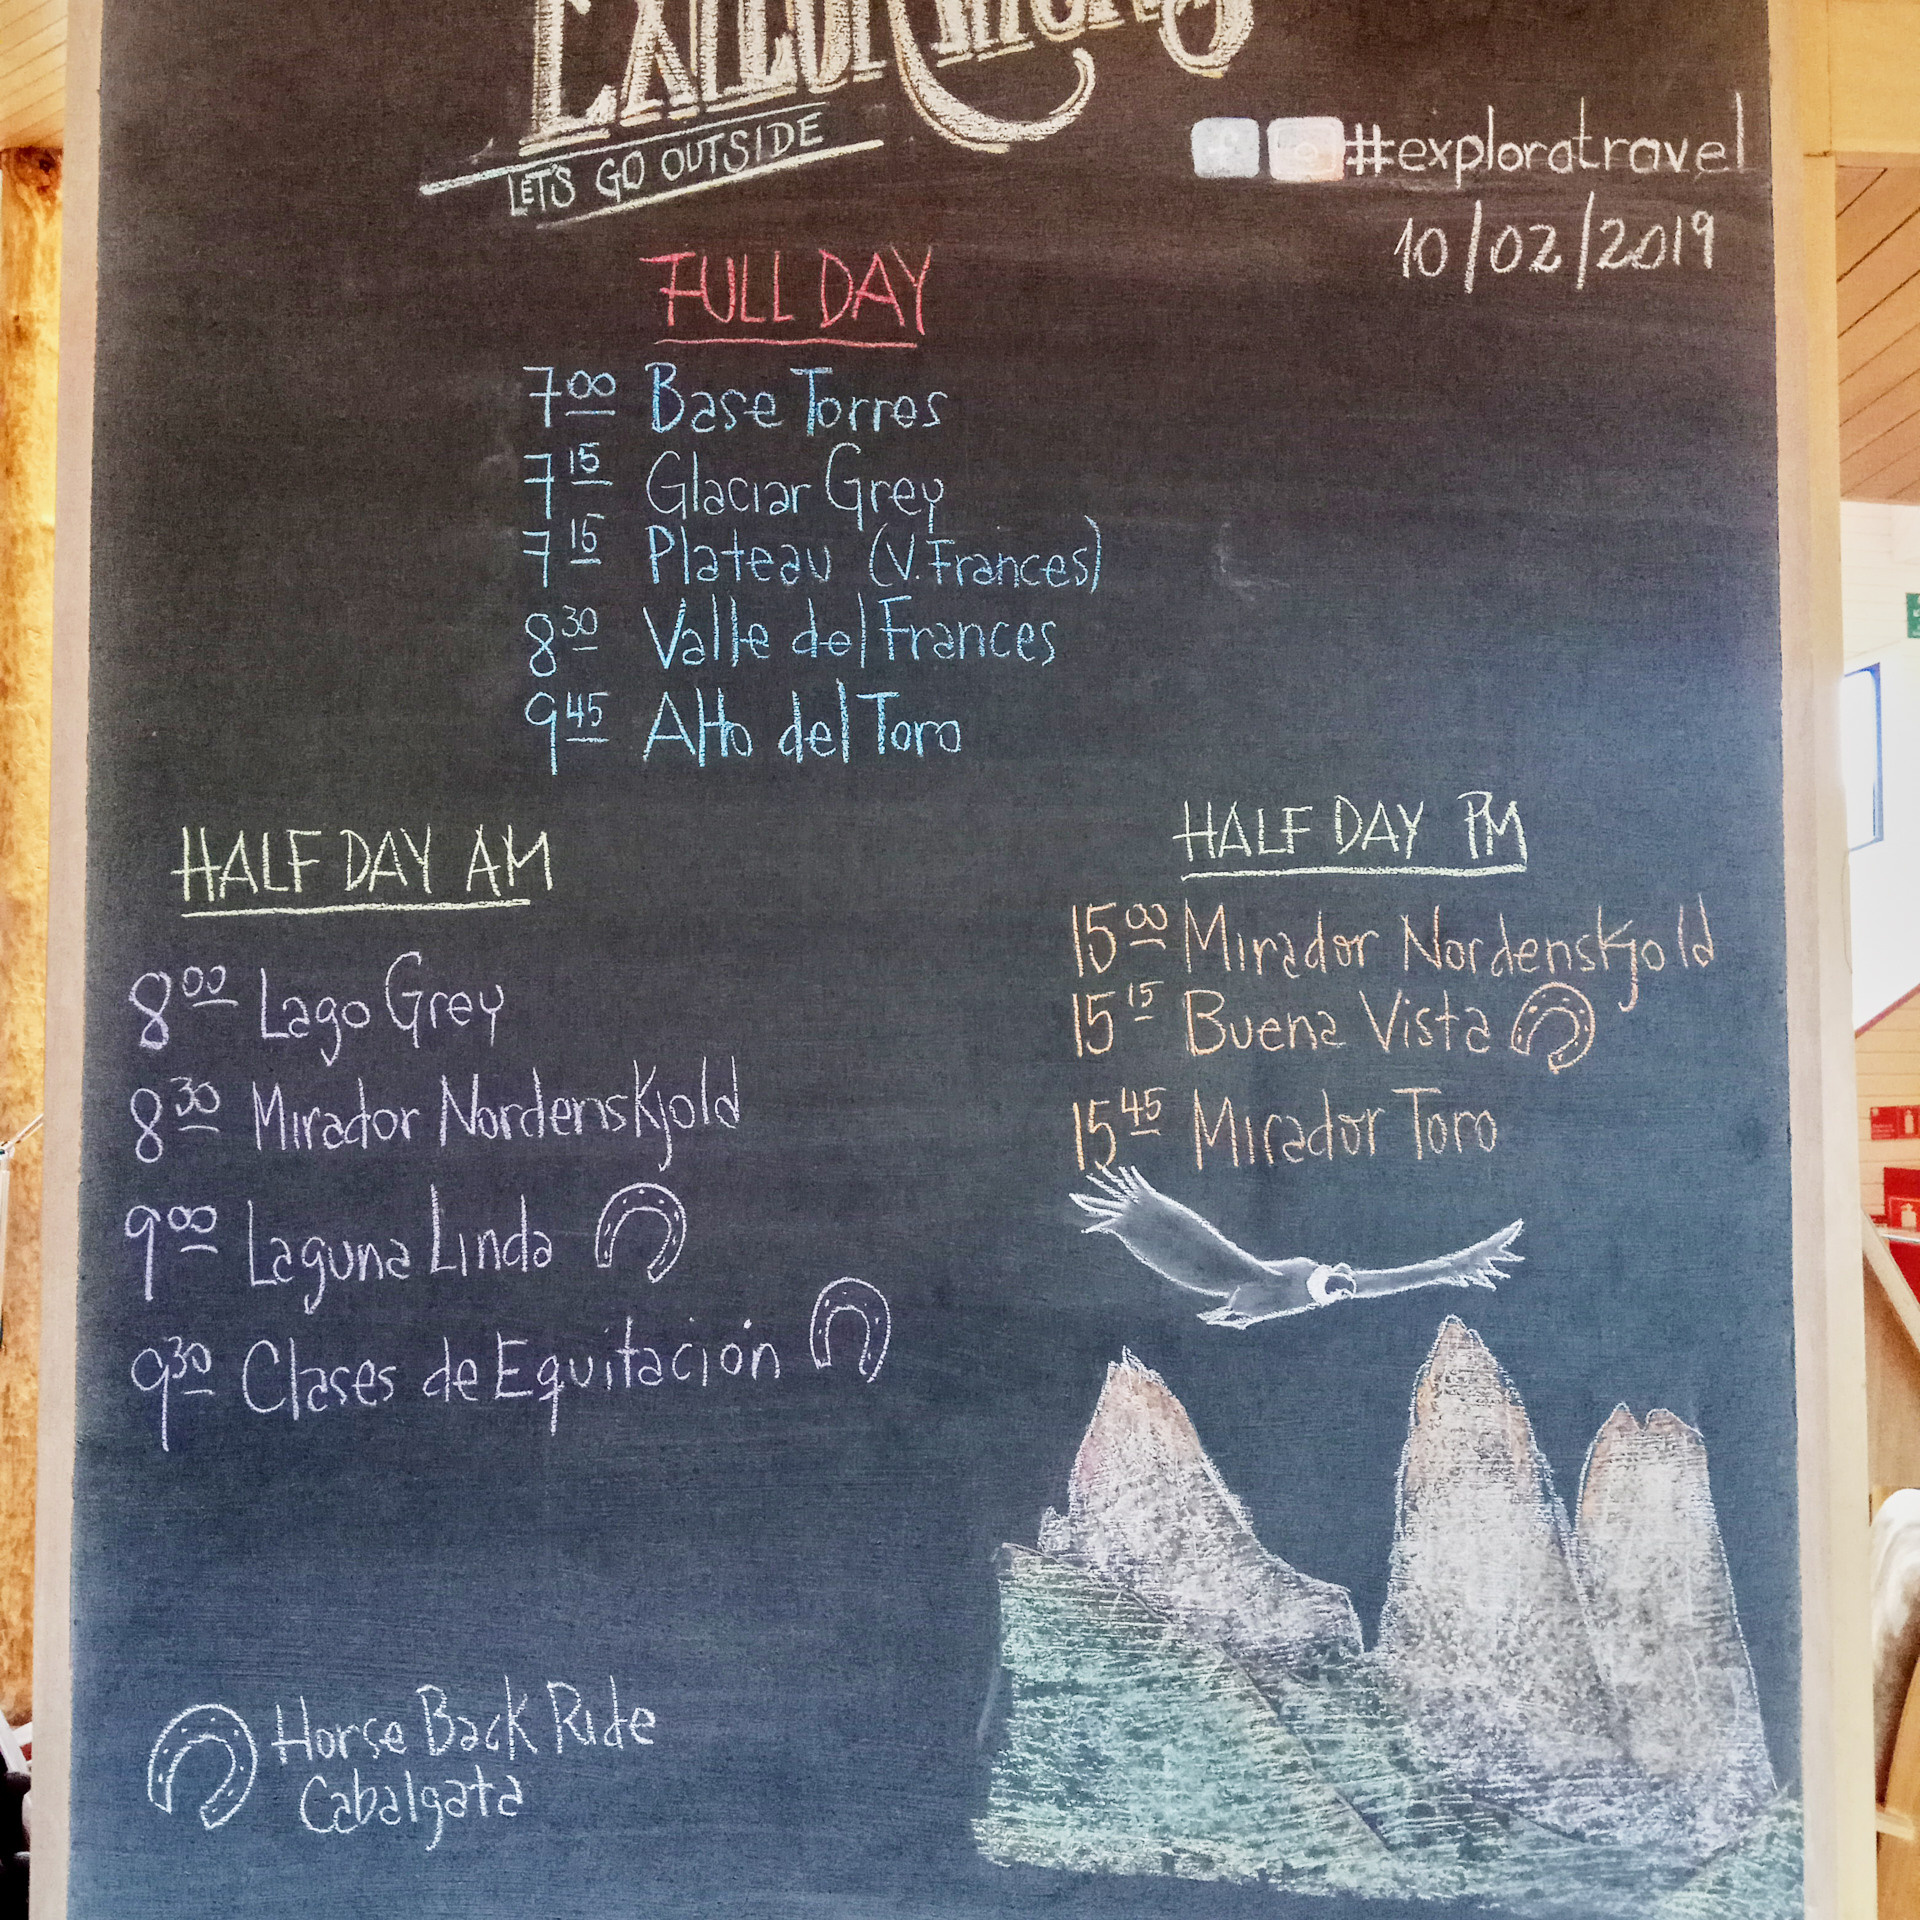 EXPLORATIONS
LET'S GO OUTSIDE
#exploratravel
10/02/2019
FULL DAY
7 00 Base Torres
7 15 Glaciar Grey
7 15 Plateau (V. Frances)
8 30 Valle del Frances
9 45 Alto del Toro
HALF DAY AM
8 00 Lago Grey
8 30 Mirador Nordenskjold
9 00 Laguna Linda
9 30 Clases de Equitación
HALF DAY PM
15 00 Mirador Nordenskjold
15 15 Buena Vista
15 45 Mirador Toro
Horse Back Ride
Cabalgata